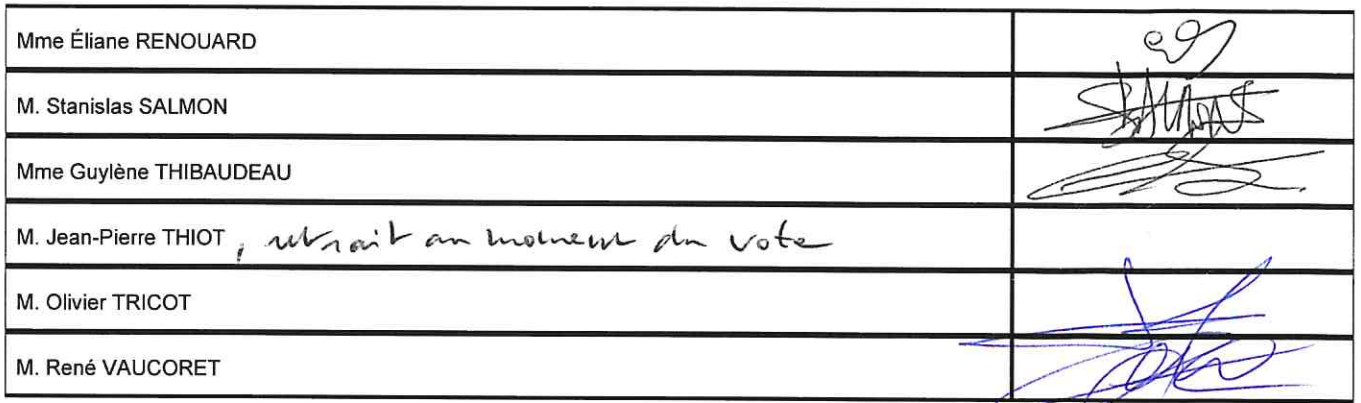 Mme Éliane RENOUARD
M. Stanislas SALMON
Mme Guylène THIBAUDEAU
M. Jean-Pierre THIOT , retrait au moment du vote
M. Olivier TRICOT
M. René VAUCORET